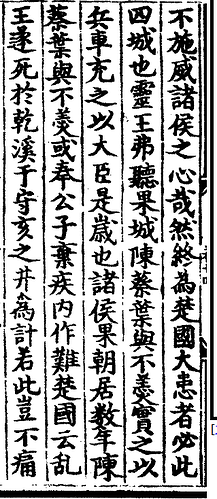 不施威諸侯之心哉然終為楚國大患者必此
四城也靈王弗聽果城陳蔡葉與不羹實之以
兵車充之以大臣是歲也諸侯果朝居數年陳
蔡葉與不羹或奉公子棄疾内作難楚國云亂
王遂死於乾溪于守亥之井為計若此豈不痛